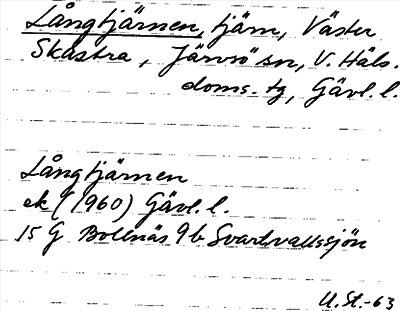 Långtjärnen, tjärn, Väster
Skästra, Järvsö sn, V. Häls.
doms. tg, Gävl. l.
Långtjärnen
ek (1960) Gävl. l.
15 G Bollnäs 9b Svartvallssjön
U.St.-63